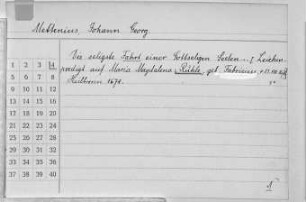 Mettenius, Johann Georg.
Die seligste Fahrt einer Gottseligen Seelen ... / Leichen-
predigt auf Maria Magdalena Rühle, geb. Fabricius
Heilbronn 1671.
1 2 3 4
5 6 7 8
9 10 11 12
13 14 15 16
17 18 19 20
21 22 23 24
25 26 27 28
29 30 31 32
33 34 35 36
37 38 39 40
1